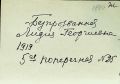 Безрозванная
Лидия Георгиевна
1919
5ая Поперечная №25